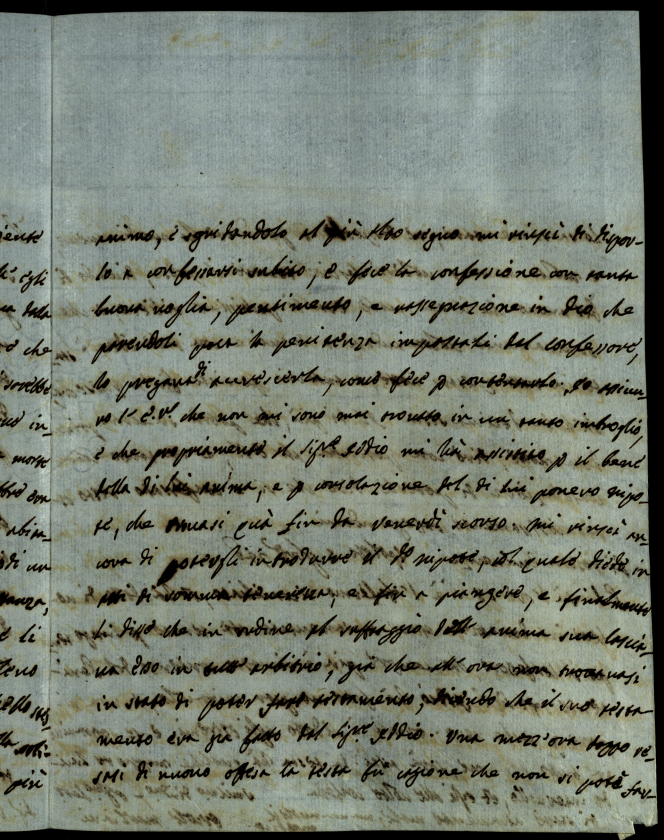 animo, è sgridandolo al più alto segno mi riuscì di dispor-
lo a confessarsi subito, è fece la confessione con tanta
buona voglia, pentimento, e rassegnazione in Dio che
parendoli poca la penitenza impostali dal confessore,
lo pregava di accrescerla, come fece p contentarlo. Io assicu-
ro l' E.V. che non mi sono mai trovato in un tanto imbroglio,
è che propriamente il Sig.re Iddio mi hà assistito p il bene
della di lui anima, e p consolazione del di lui povero nipo-
te, che quà fin da venerdì scorso. mi riuscì an-
cora di potergli introdurre il do nipote, col quale diede in
atti di somma tenerezza, e fin a piangere, e finalmente
li disse che in ordine al suffragio dell' anima sua lascia-
va esso in suo arbitrio, già che all' ora non trovavasi
in stato di poter fare testamento, dicendo che il suo testa
mento era già fatto dal Sig.re Iddio. Una mezz'ora doppo re-
sasi di nuovo offesa la testa fù cagione che non si potè